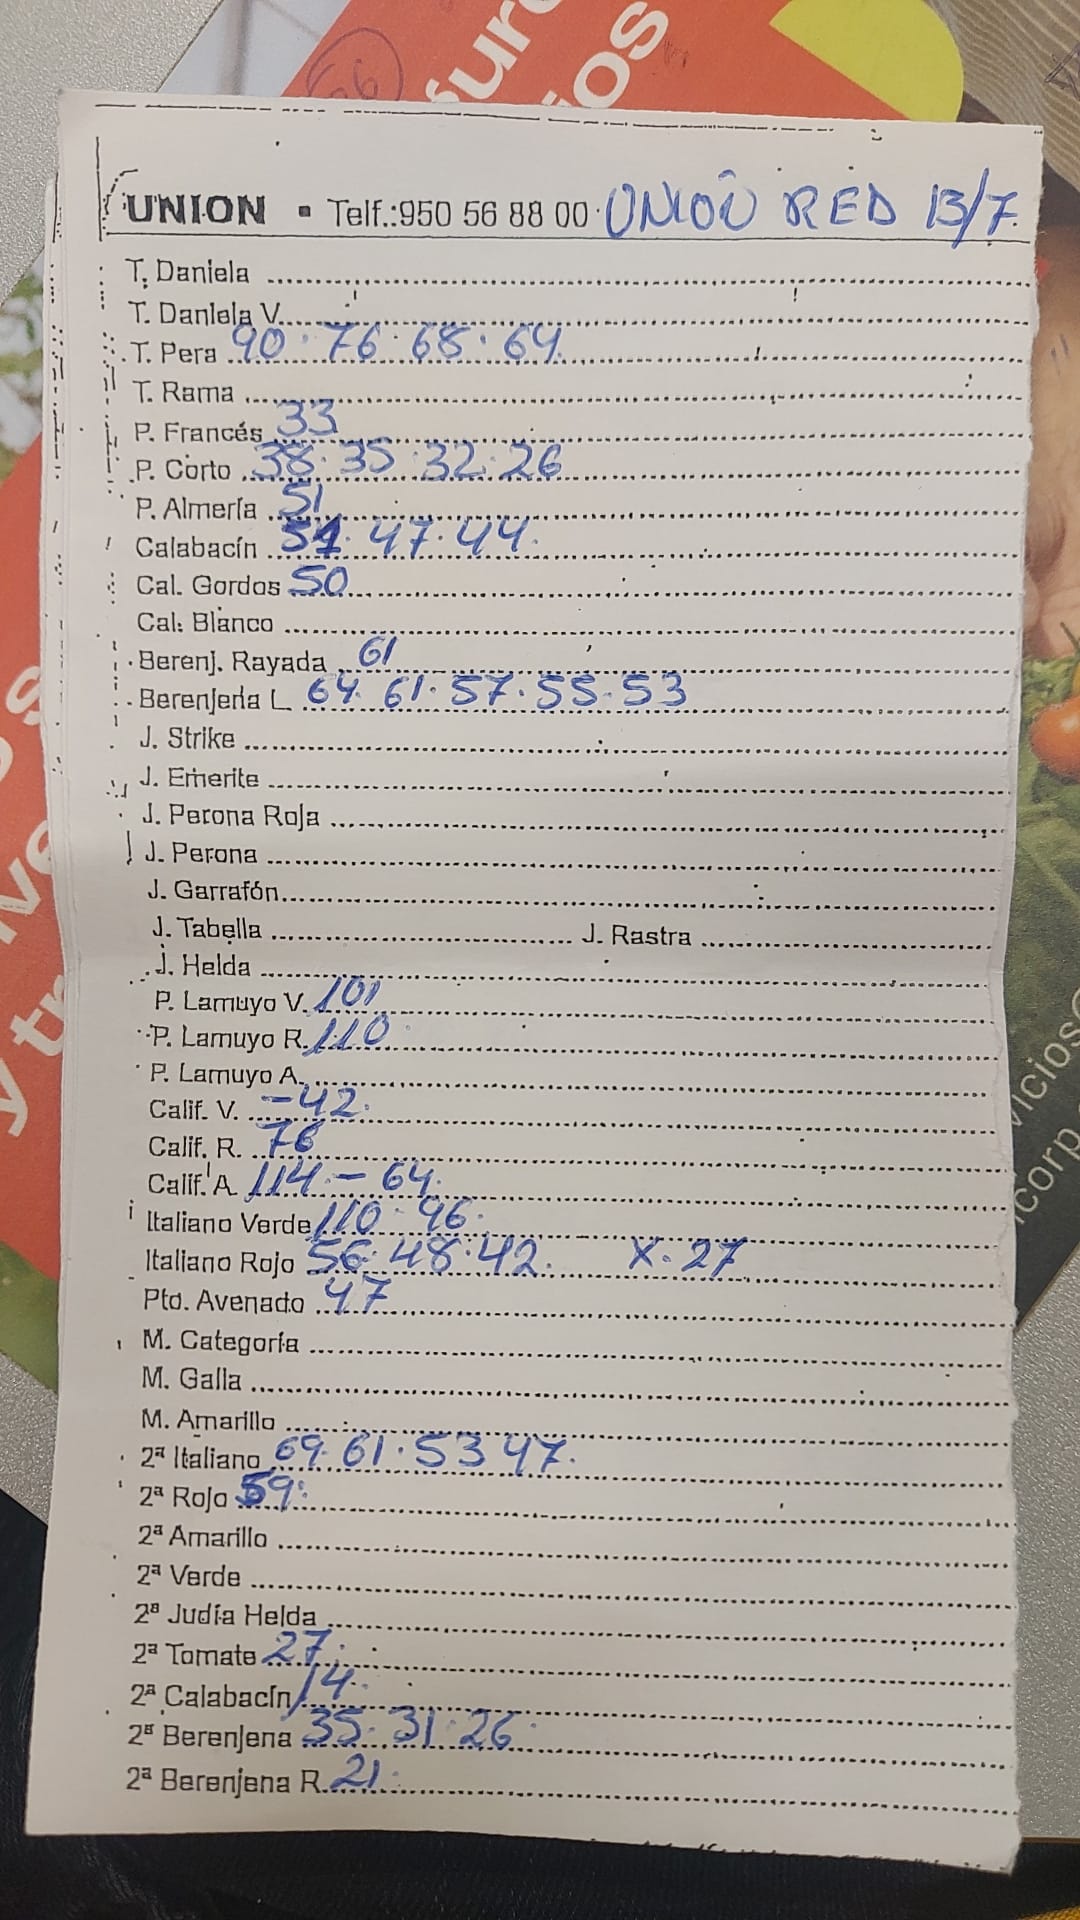 UNION ▪ Telf.:950 56 88 00 UNION RED 13/7.
T. Daniela
T. Daniela V.
T. Pera 90 · 76 · 68 · 64.
T. Rama
P. Francés 33
P. Corto 38 · 35 · 32 · 26
P. Almería 51
Calabacín 51 · 47 · 44.
Cal. Gordos 50
Cal. Blanco
Berenj. Rayada 61
Berenjena L 64 · 61 · 57 · 55 · 53
J. Strike
J. Emerite
J. Perona Roja
J. Perona
J. Garrafón
J. Tabella J. Rastra
J. Helda
P. Lamuyo V. 101
P. Lamuyo R. 110
P. Lamuyo A.
Calif. V. -42.
Calif. R. 76
Calif. A. 114 - 64.
Italiano Verde 110 - 96.
Italiano Rojo 56 · 48 · 42. X · 27
Pto. Avenado 47
M. Categoría
M. Galia
M. Amarillo
2ª Italiano 69 · 61 · 53 47.
2ª Rojo 59
2ª Amarillo
2ª Verde
2ª Judía Helda
2ª Tomate 27.
2ª Calabacín 14.
2ª Berenjena 35 · 31 · 26
2ª Berenjena R. 21